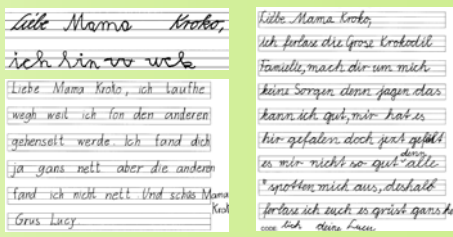 Liebe Mama Kroko,
ich bin vo wek
Liebe Mama Kroko, ich laufhe
wegh weil ich fon den anderen
gehenselt werde. Ich fand dich
ja gans nett aber die anderen
fand ich nicht nett. Und schüs Mama
Krok
Grus Lucy.
Liebe Mama Kroko,
ich ferlase die Grose Krokodil
Familie, mach dir um mich
keine Sorgen denn jagen das
kann ich gut, mir hat es
hir gefalen doch jezt gefält
es mir nicht so gut denn alle
spotten mich aus, deshalb
ferlase ich euch es grüst gans he
lich deine Lucy